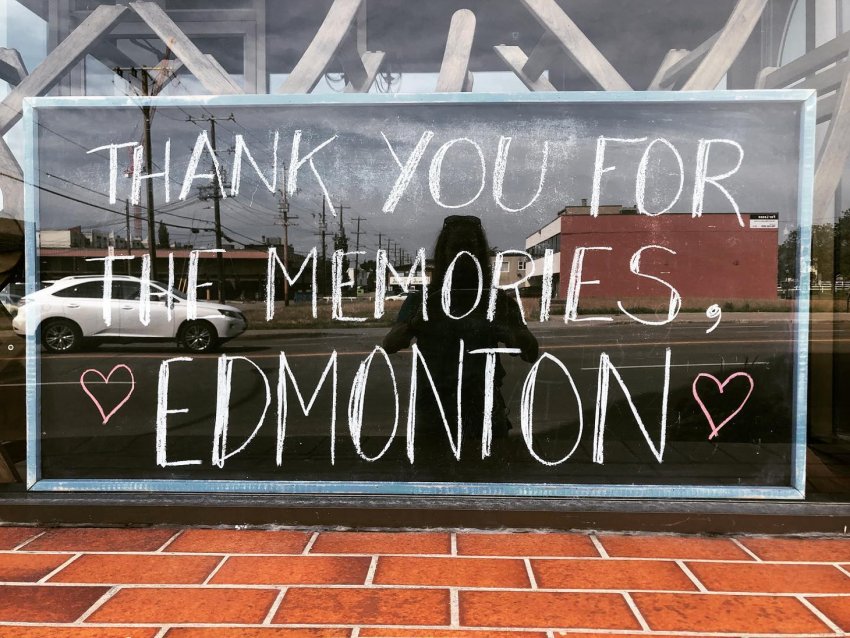 THANK YOU FOR
THE MEMORIES,
EDMONTON